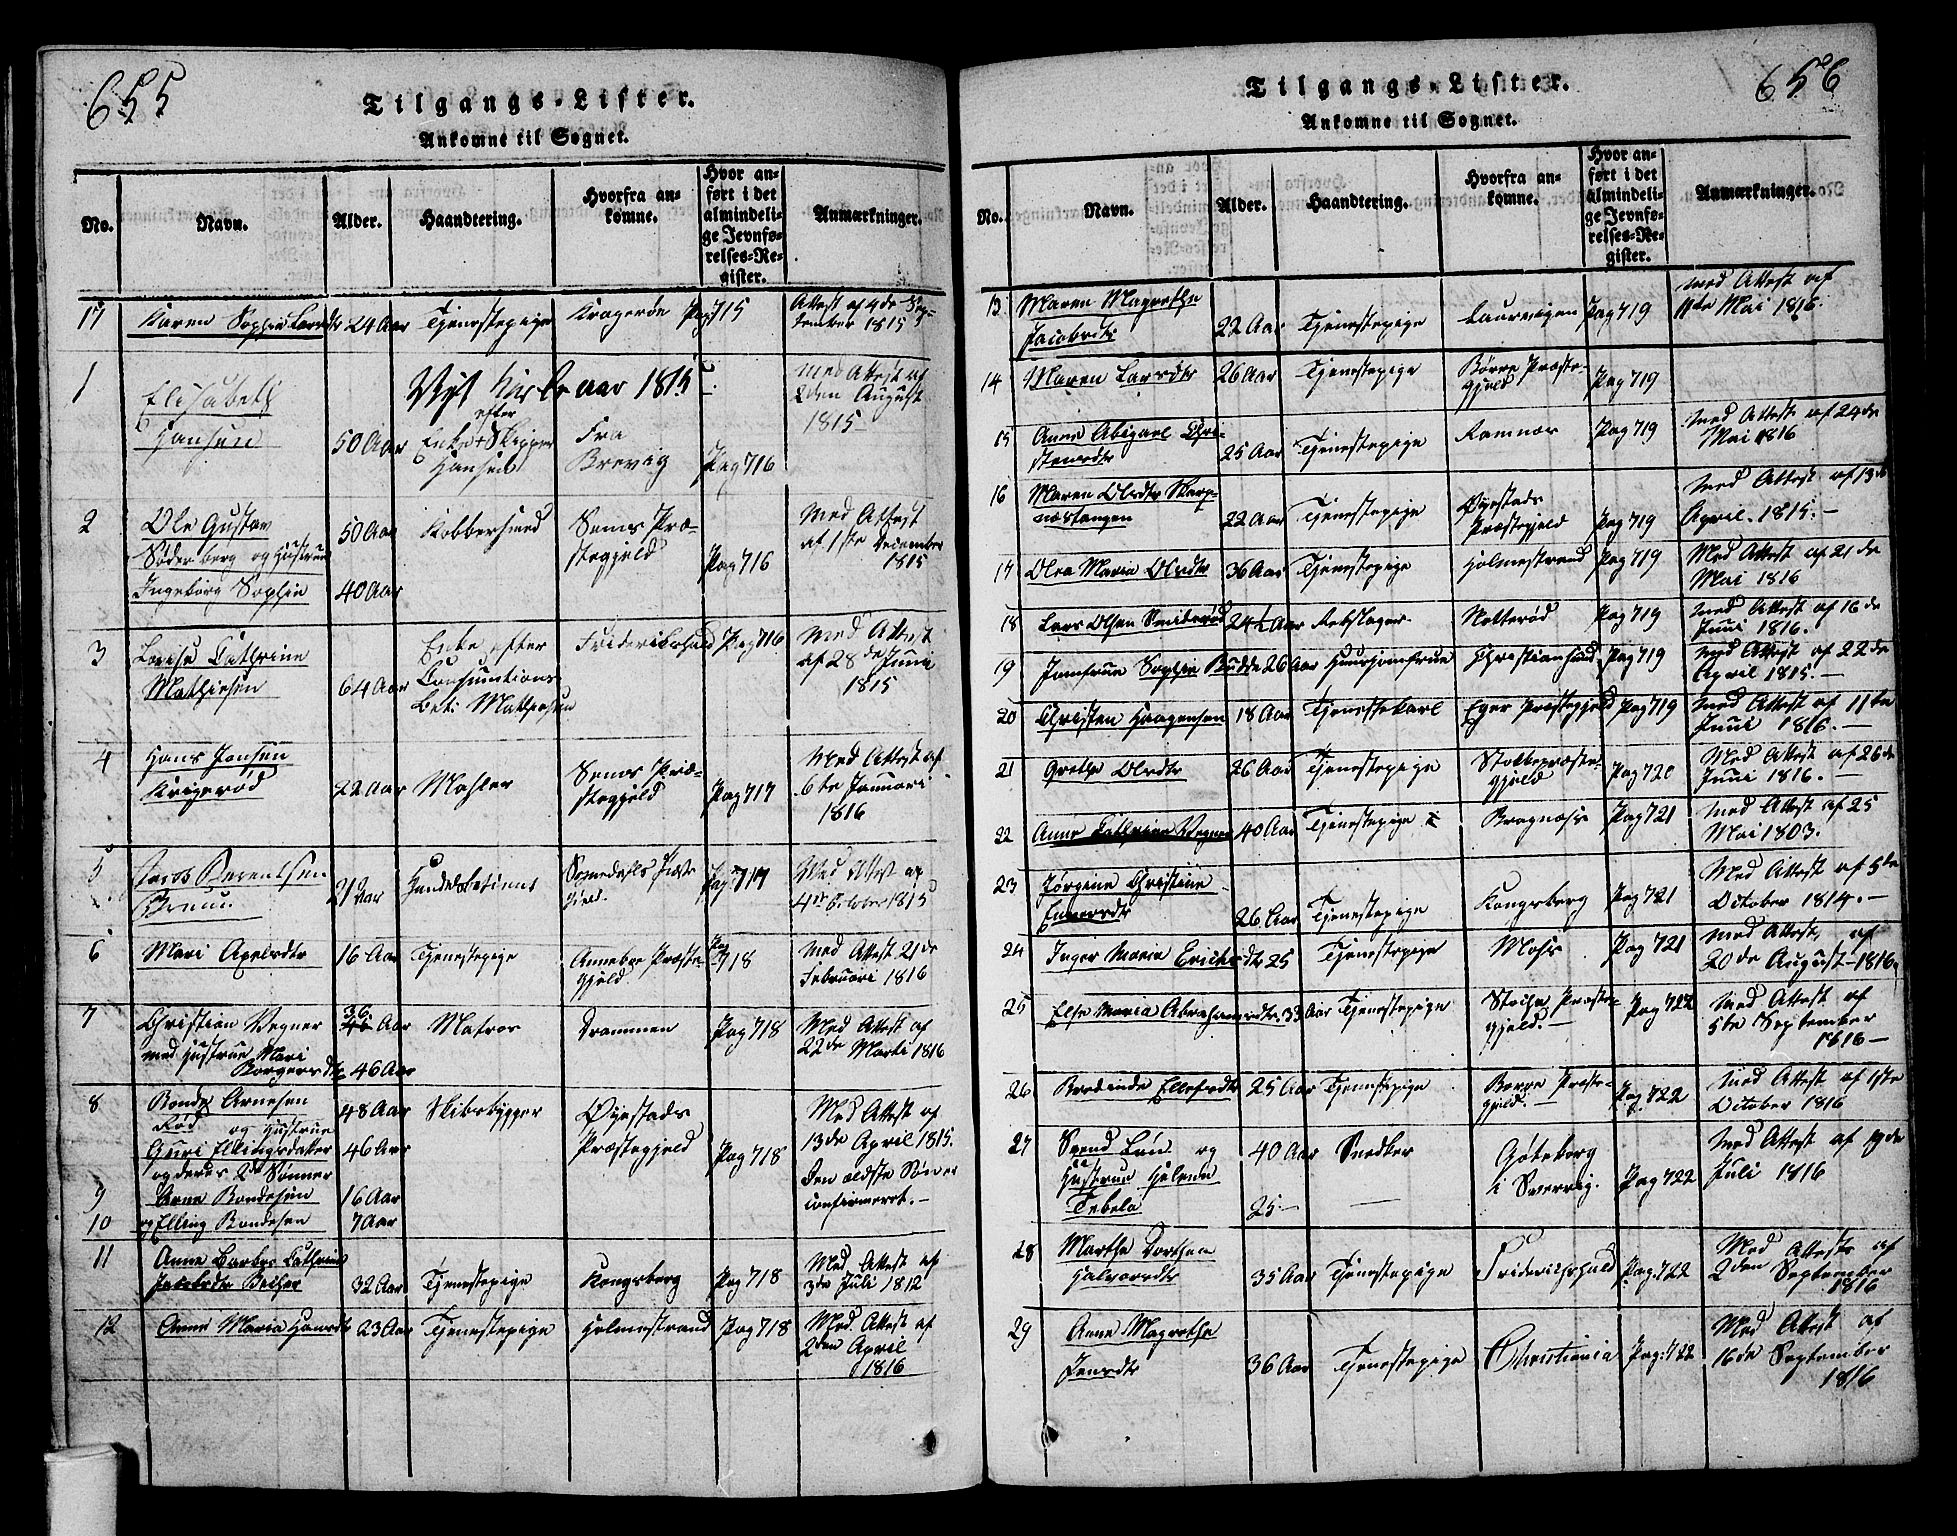 655
Tilgangs-Lister.
Ankomne til Sognet.
No. Navn. Alder. Haandtering. Hvorfra ankomne. Hvor anført i det almindelige Jevnførelses-Register. Anmærkninger.
17 Karen Sophie Larsdtr 24 Aar Tjenestepige Kragerøe Pag 715 Attest af 4de September 1815
1 Elisabeth Hansen 50 Aar Enke efter Skipper Hansen Fra Brevig Pag 716 med Attest af 2den August 1815
Nyt Kirke aar 1815
2 Ole Gustav Søderberg og Hustrue 50 Aar Kobbersmed Sems Præstegjeld Pag 716 Med Attest af 1ste December 1815
Ingeborg Sophie 40 Aar
3 Lovise Cathrine Mathiesen 64 Aar Enke efter Consumtions Bet: Mathiesen Friderikshald Pag 716 Med Attest af 28de Juni 1815
4 Hans Jensen Krigerød 22 Aar Mahler Sems Præstegjeld Pag 717 Med Attest af 6te Januari 1816
5 Jacob Berentsen Bruu 21 Aar Handelsbetient Pag 717 Med Attest af 4de October 1815
6 Mari Axelsdtr 16 Aar Tjenestepige Annebye Præstegjeld Pag 718 med Attest 21de Februari 1816
7 Christian Wegner 36 Aar Matros Drammen Pag 718 Med Attest af 22de Marti 1816
med Hustrue Mari Borgersdtr 46 Aar
8 Bonde Arnesen Rød og Hustrue 48 Aar Skibsbygger Øyestads Præstegjeld Pag 718 Med Attest af 13de April 1815.
Guri Ellingsdatter 46 Aar
og deres 2de Sønner Den ældste Søn er confirmeret.-
9 Arne Bondesen 16 Aar
10 og Elling Bondesen 7 Aar
11 Anne Barbra Cathrine Jacobsdtr Becher 32 Aar Tjenestepige Kongsberg Pag 718 Med Attest af 3de Juli 1812
12 Anne Maria Hansdtr 23 Aar Tjenestepige Holmestrand Pag 718 Med Attest af 2den April 1816
656
Tilgangs-Lister.
Ankomne til Sognet.
No. Navn. Alder. Haandtering. Hvorfra ankomne. Hvor anført i det almindelige Jevnførelses-Register. Anmærkninger.
13 Maren Magrethe Jacobsdtr 22 Aar Tjenestepige Laurvigen Pag 719 med Attest af 11te Mai 1816.
14 Maren Larsdtr 26 Aar Tjenestepige Børre Præstegjeld Pag 719
15 Anne Abigael Christensdtr 25 Aar Tjenestepige Ramnæs Pag 719 med Attest af 24de Mai 1816
16 Maren Olsdtr Skarpnæstangen 22 Aar Tjenestepige Øyestads Præstegjeld Pag 719 Med Attest af 13de April. 1815.-
17 Olea Maria Olsdtr 36 Aar Tjenestepige Holmestrand Pag 719 Med Attest af 21de Mai 1816
18 Lars Olsen Smiderød 24½ Aar Rebslager Notterød Pag 719 med Attest af 16de Juni 1816.
19 Jomfrue Sophie Budde 26 Aar Huusjomfrue Christiansund Pag 719 med Attest af 22de April 1815.-
20 Christen Haagensen 18 Aar Tjenestekarl Eger Præstegjeld Pag 719 med Attest af 11te Juni 1816.-
21 Grethe Olsdtr 26 Aar Tjenestepige Stokkepræstegjeld Pag 720 Med Attest af 26de Juni 1816.-
22 Anne Cathrine Wegner 40 Aar Tjenestepige Bragnæs Pag 721 med Attest af 25 Mai 1803.
23 Jørgine Christine 26 Aar Tjenestepige Kongsberg Pag 721 Med Attest af 5te October 1814.-
24 Inger Maria Erichsdtr 25 Tjenestepige Moss Pag 721 med Attest af 20de August 1816
25 Else Maria Abrahamsdtr. 33 Aar Tjenestepige Præstegjeld.- Pag 722 Med Attest af 5te September 1816-
26 Ellefsdtr 25 Aar Tjenestepige Borre Præstegjeld.- Pag. 722 Med Attest af 1ste October 1816
27 Svend Løu og 40 Aar Snedker Gøteborg i Sverrig. Pag 722 Med Attest af 19de Juli 1816
Hustrue Helena Tebela 25-
28 Marthe Dorthea Halvorsdtr 35 Aar Tjenestepige Friderichshald Pag: 722 Med Attest af 2den September 1816
29 Anne Magrethe Jensdtr 36 Aar Tjenestepige Christiania Pag: 722 Med Attest af 16de September 1816